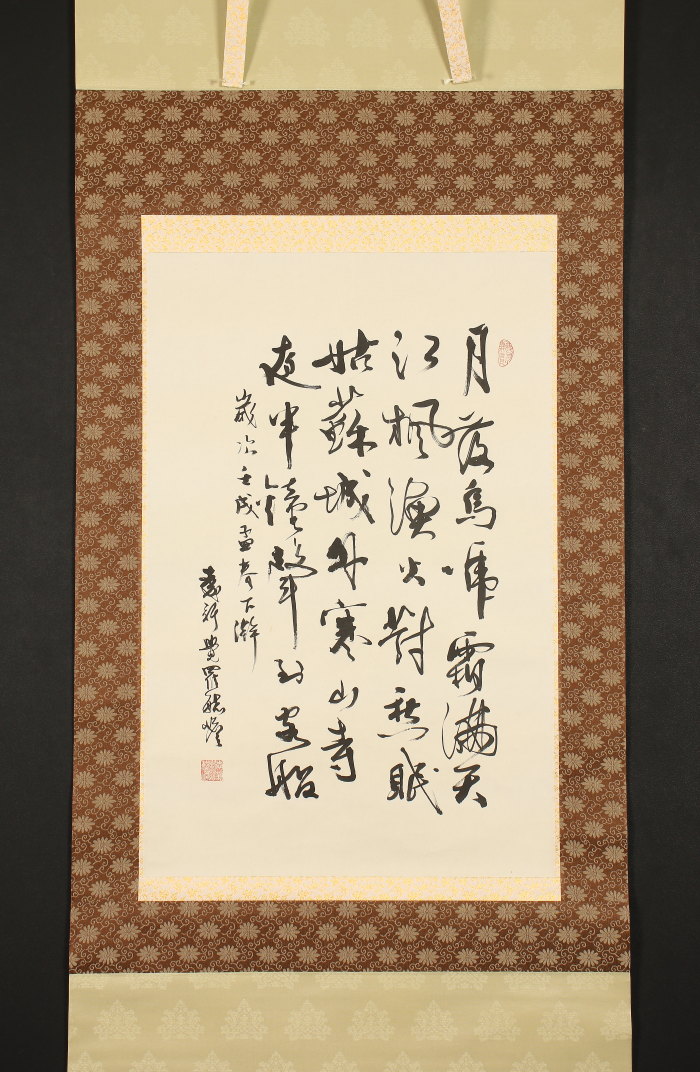 月落烏啼霜滿天
江楓漁火對愁眠
姑蘇城外寒山寺
夜半鐘聲到客船
歲次壬戌孟春下澣
愛新覺羅毓